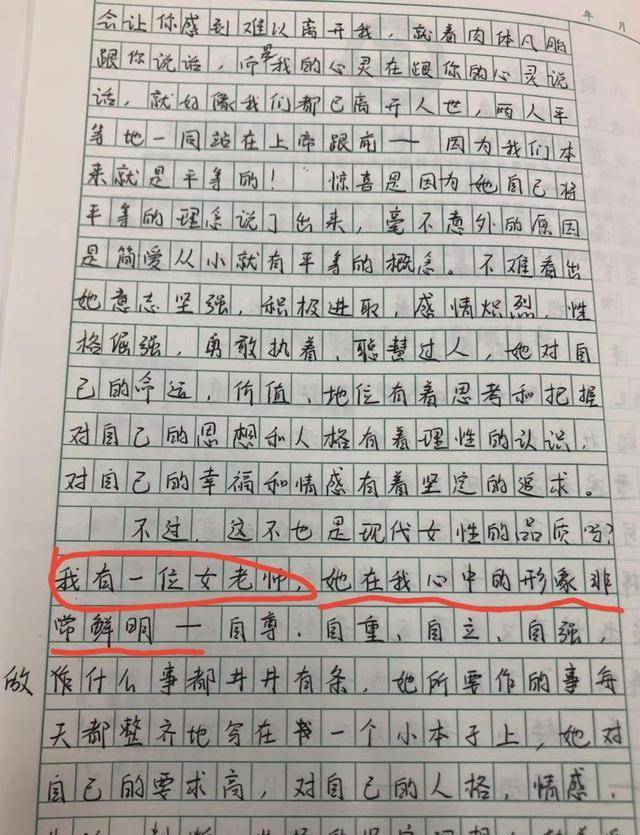 年 月
会让你感到难以离开我，就着肉体凡胎
跟你说话，而是我的心灵在跟你的心灵说
话，就好像我们都已离开人世，两人平
等地一同站在上帝跟前——因为我们本
来就是平等的！ 惊喜是因为她自己将
平等的理念说了出来，毫不意外的原因
是简爱从小就有平等的概念。不难看出
她意志坚强，积极进取，感情炽烈，性
格倔强，勇敢执着、聪慧过人，她对自
己的命运，价值、地位有着思考和把握
对自己的思想和人格有着理性的认识，
对自己的幸福和情感有着坚定的追求。
不过，这不也是现代女性的品质吗？
我有一位女老师，她在我心中的形象非
常鲜明——自尊、自重、自立、自强，
做 作什么事都井井有条，她所要作的事每
天都整齐地写在一个小本子上，她对
自己的要求高，对自己的人格，情感、